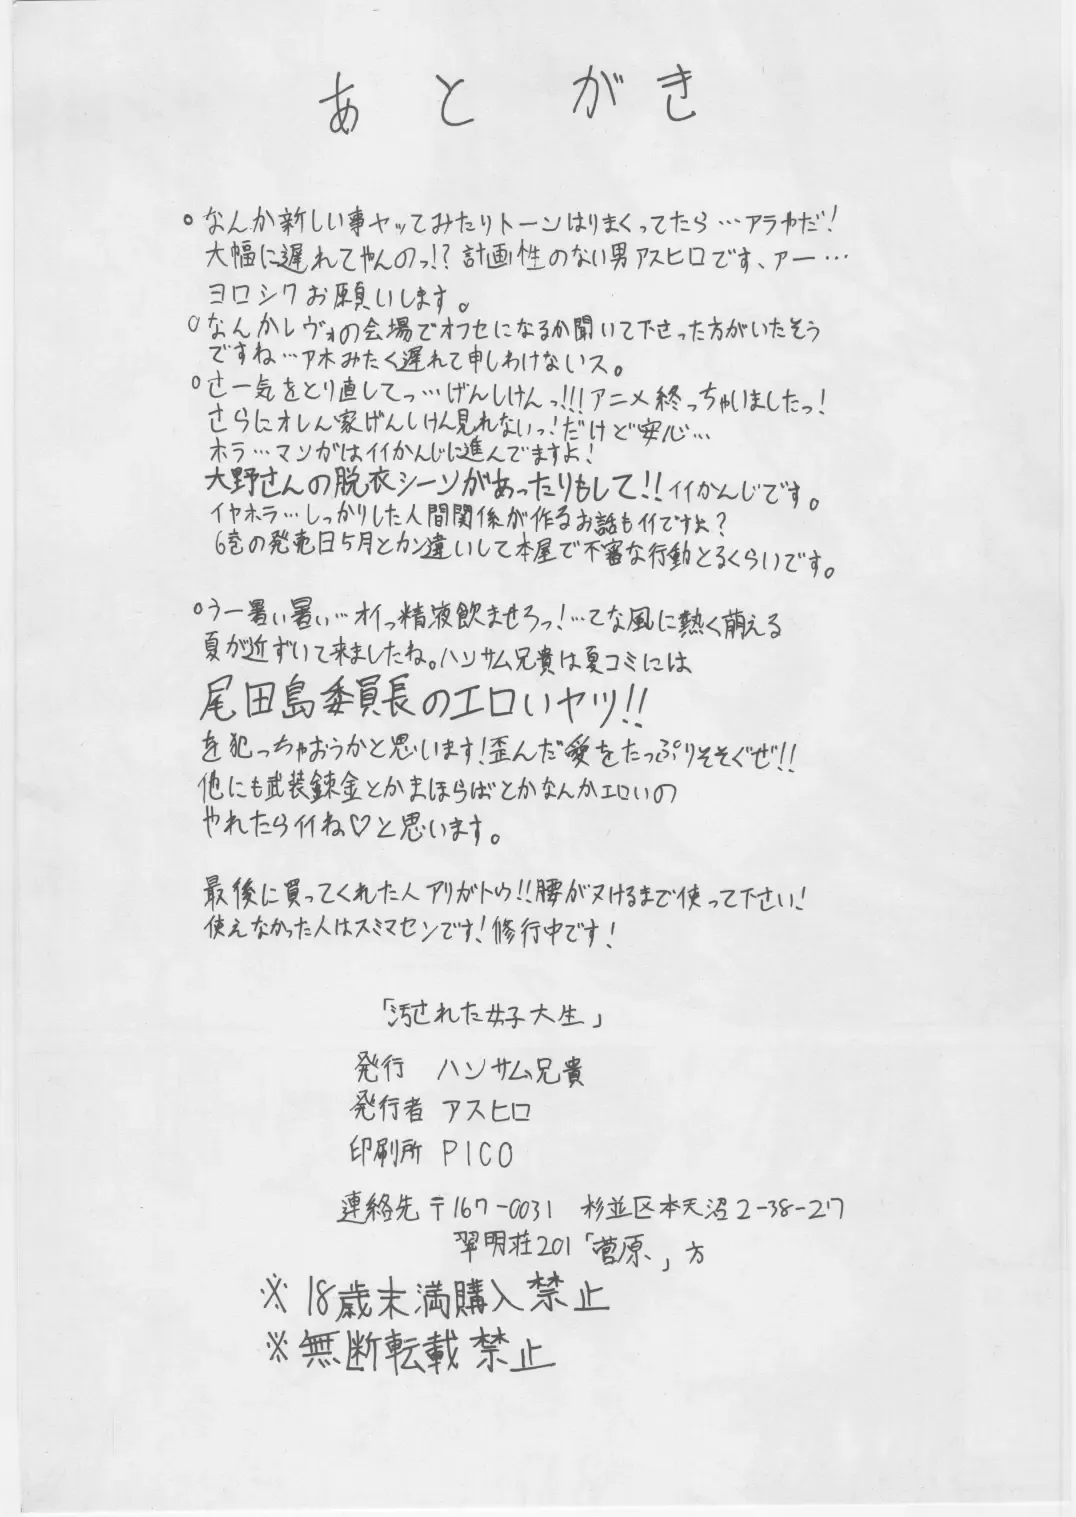 あとがき
○なんか新しい事ヤッてみたりトーンはりまくってたら…アラやだ!
大幅に遅れてやんのっ!?計画性のない男アスヒロです、アー…
ヨロシクお願いします。
○なんかレヴォの会場でオフセになるか聞いて下さった方がいたそう
ですね…アホみたく遅れて申しわけないス。
○さー気をとり直してっ…げんしけんっ!!!アニメ終っちゃいましたっ!
さらにオレん家げんしけん見れないっ!だけど安心…
ホラ…マンガはイイかんじに進んでますよ!
大野さんの脱衣シーンがあったりもして!!イイかんじです。
イヤホラ…しっかりした人間関係が作るお話もイイですよ?
6巻の発売日5月とカン違いして本屋で不審な行動とるくらいです。
○うー暑い暑い…オイっ精液飲ませろっ!…てな風に熱く萌える
夏が近ずいて来ましたね。ハンサム兄貴は夏コミには
尾田島委員長のエロいヤツ!!
を犯っちゃおうかと思います!歪んだ愛をたっぷりそそぐぜ!!
他にも武装錬金とかまほらばとかなんかエロいの
やれたらイイね♡と思います。
最後に買ってくれた人アリガトウ!!腰がヌけるまで使って下さい!
使えなかった人はスミマセンです!修行中です!
「汚された女子大生」
発行 ハンサム兄貴
発行者 アスヒロ
印刷所 PICO
連絡先 〒167-0031 杉並区本天沼2-38-27
翠明荘201「菅原」方
※18歳未満購入禁止
※無断転載禁止